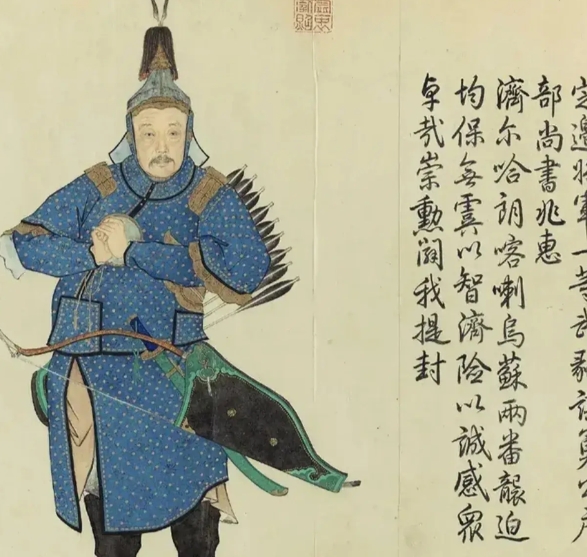 定邊將軍一等武毅謀勇公戶
部尚書兆惠
濟尔哈朗喀喇烏蘇兩番襲迫
均保無虞以智濟險以誠感眾
卓哉崇勳闢我提封